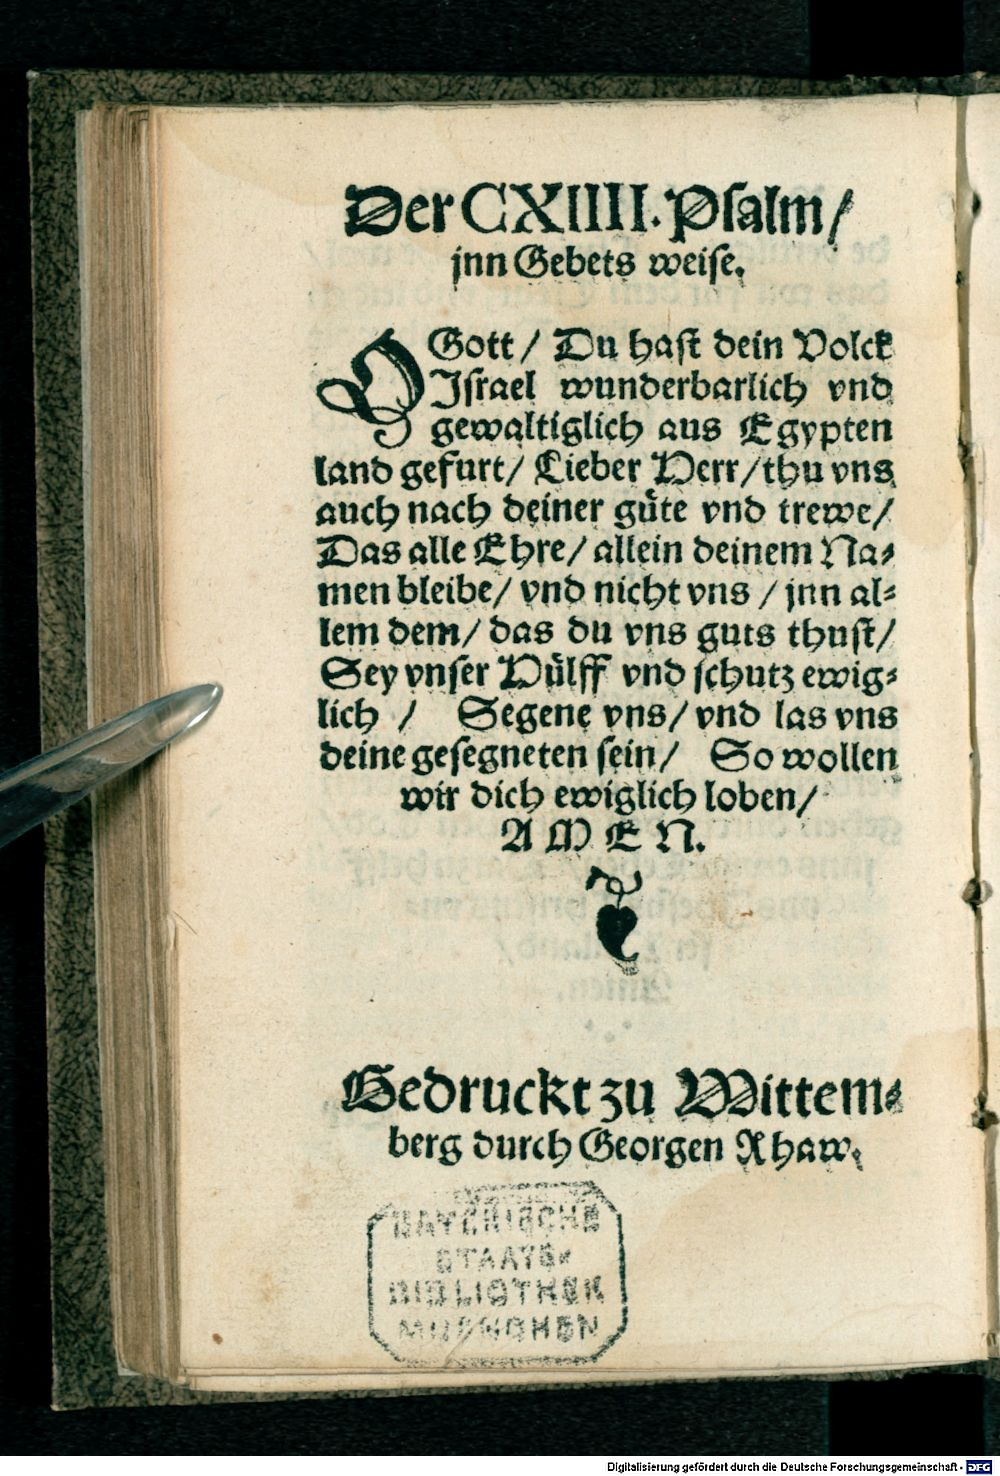 Der CXIIII. Psalm/
jnn Gebets weise.
O Gott/ Du hast dein Volck
Jsrael wunderbarlich vnd
gewaltiglich aus Egypten
land gefurt/ Lieber Herr/ thu vns
auch nach deiner güte vnd trewe/
Das alle Ehre/ allein deinem Na⸗
men bleibe/ vnd nicht vns / jnn al⸗
lem dem/ das du vns guts thust/
Sey vnser Hülff vnd schutz ewig⸗
lich / Segene vns/ vnd las vns
deine gesegneten sein/ So wollen
wir dich ewiglich loben/
AMEN.
Gedruckt zu Wittem⸗
berg durch Georgen Rhaw.
BAYERISCHE
STAATS-
BIBLIOTHEK
MUENCHEN
Digitalisierung gefördert durch die Deutsche Forschungsgemeinschaft - DFG